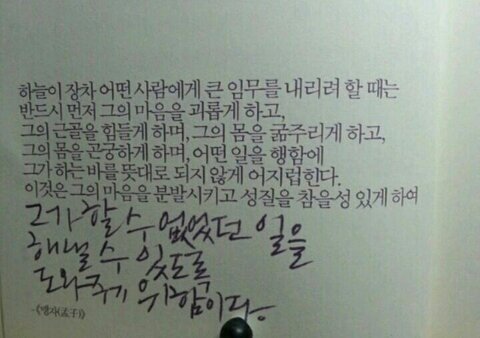 하늘이 장차 어떤 사람에게 큰 임무를 내리려 할 때는
반드시 먼저 그의 마음을 괴롭게 하고,
그의 근골을 힘들게 하며, 그의 몸을 굶주리게 하고,
그의 몸을 곤궁하게 하며, 어떤 일을 행함에
그가 하는 바를 뜻대로 되지 않게 어지럽힌다.
이것은 그의 마음을 분발시키고 성질을 참을성 있게 하여
그가 할 수 없었던 일을
해낼 수 있도록
도와주기 위함이다.
-《맹자(孟子)》